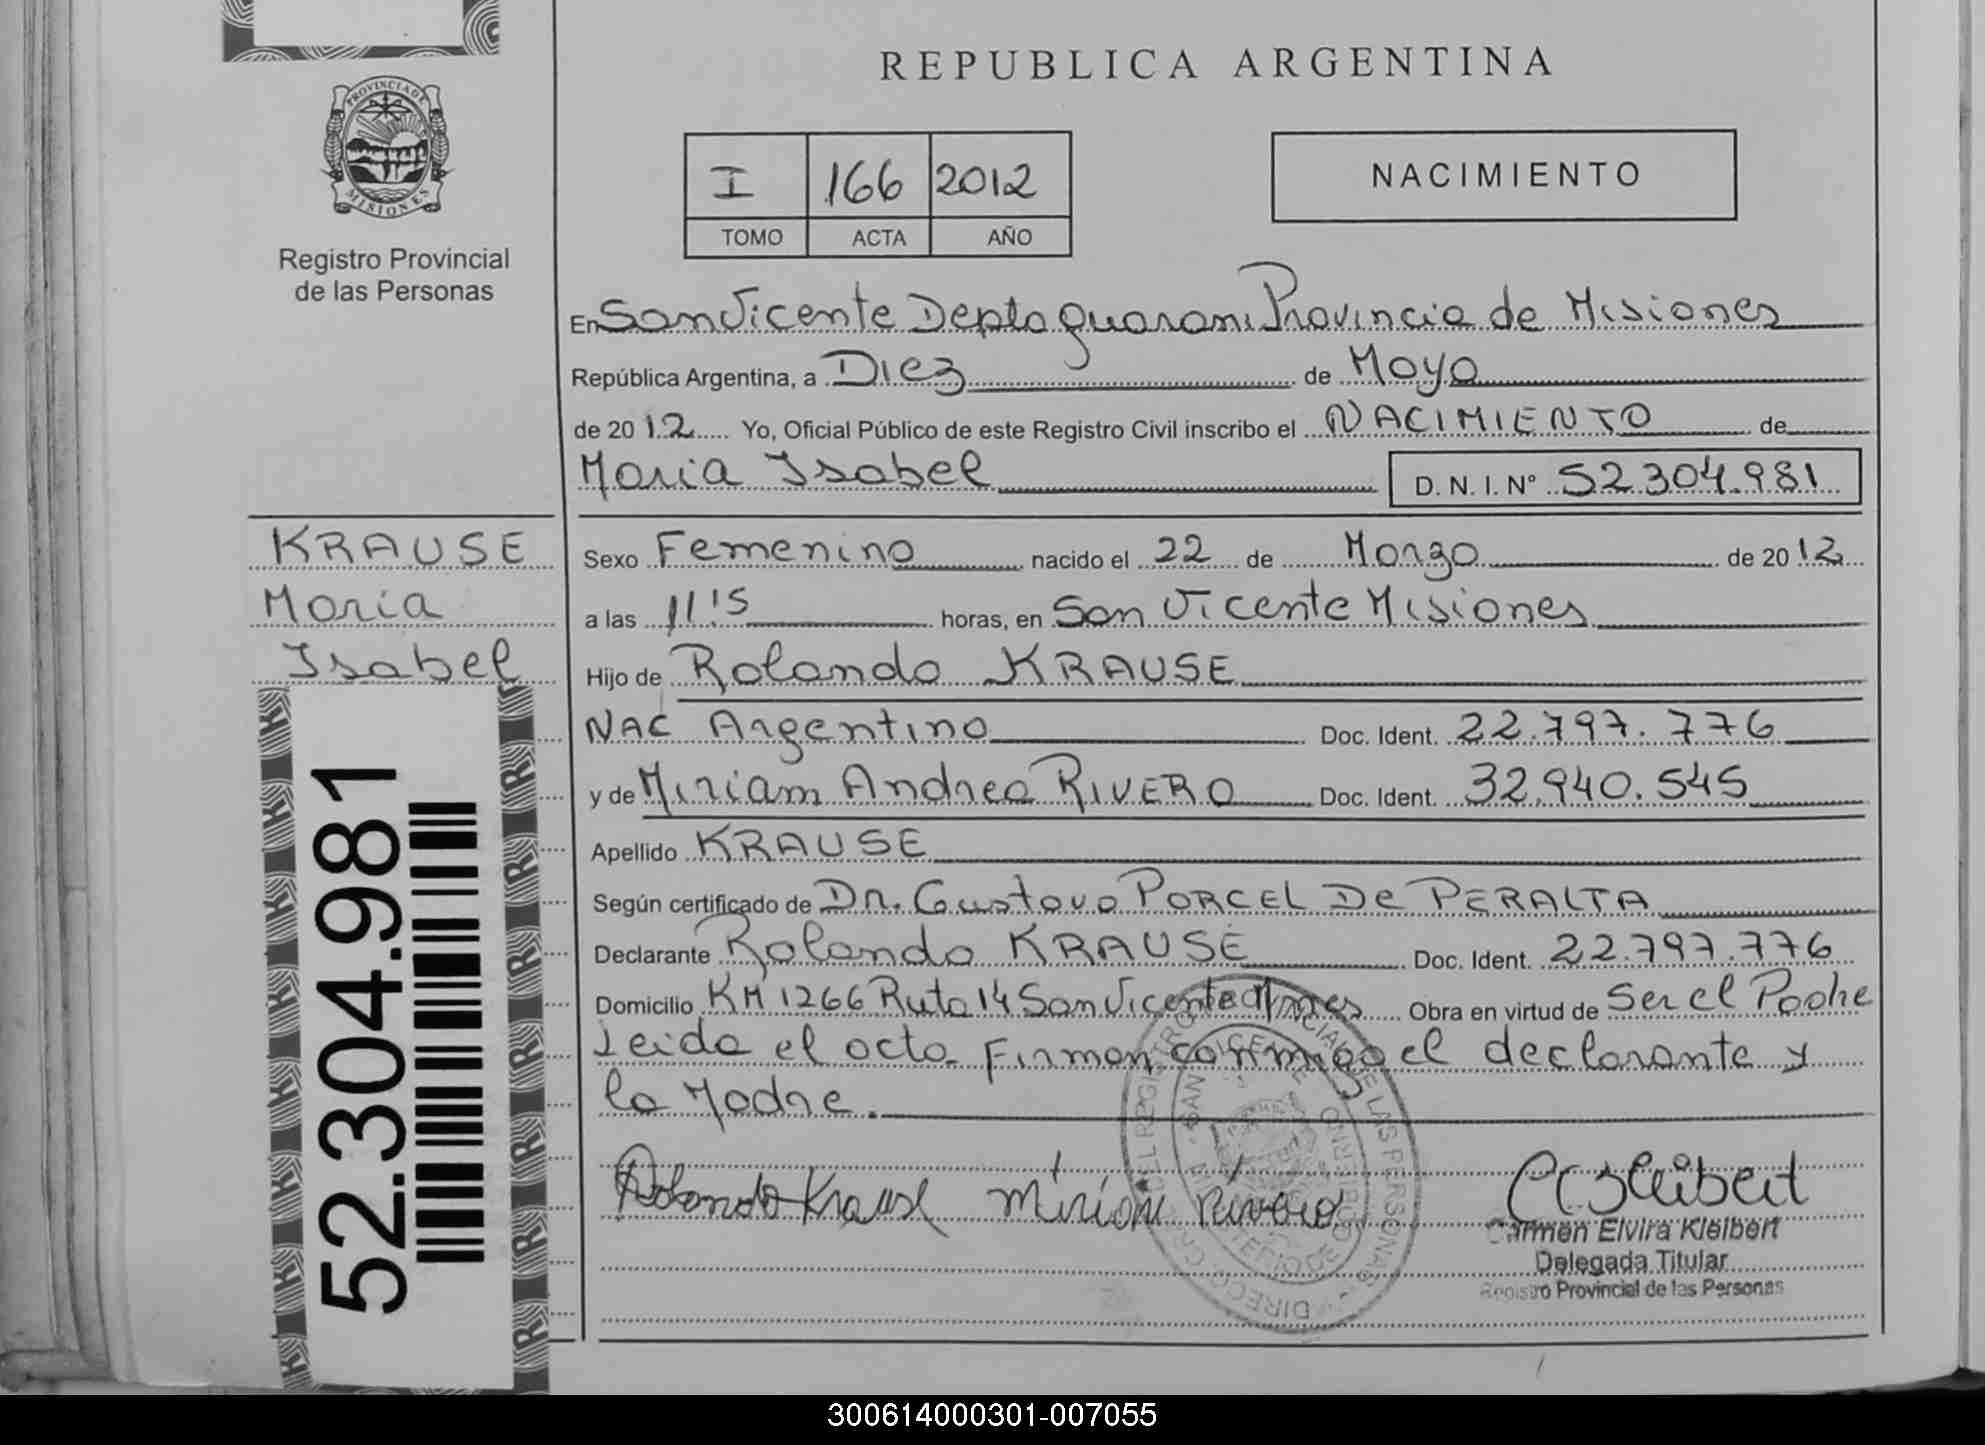 REPUBLICA ARGENTINA
PROVINCIA DE
MISIONES
Registro Provincial
de las Personas
I 166 2012
TOMO ACTA AÑO
NACIMIENTO
En San Vicente Depto guarani Provincia de Misiones
República Argentina, a Diez de Mayo
de 2012 Yo, Oficial Público de este Registro Civil inscribo el NACIMIENTO de
Maria Isabel D. N. I. N° 52.304.981
KRAUSE
Maria
Isabel
52.304.981
Sexo Femenino nacido el 22 de Marzo de 2012
a las 11'15 horas, en San Vicente Misiones
Hijo de Rolando KRAUSE
NAC Argentino Doc. Ident. 22.797.776
y de Miriam Andrea RIVERO Doc. Ident. 32.940.545
Apellido KRAUSE
Según certificado de Dr. Gustavo PORCEL De PERALTA
Declarante Rolando KRAUSE Doc. Ident. 22.797.776
Domicilio KM 1266 Ruta 14 San Vicente Mnes Obra en virtud de Ser el Padre
Leida el acta Firman conmigo el declarante y
la Madre.
Rolando Krause Miriam Rivero
Carmen Elvira Kleibert
Delegada Titular
Registro Provincial de las Personas
300614000301-007055